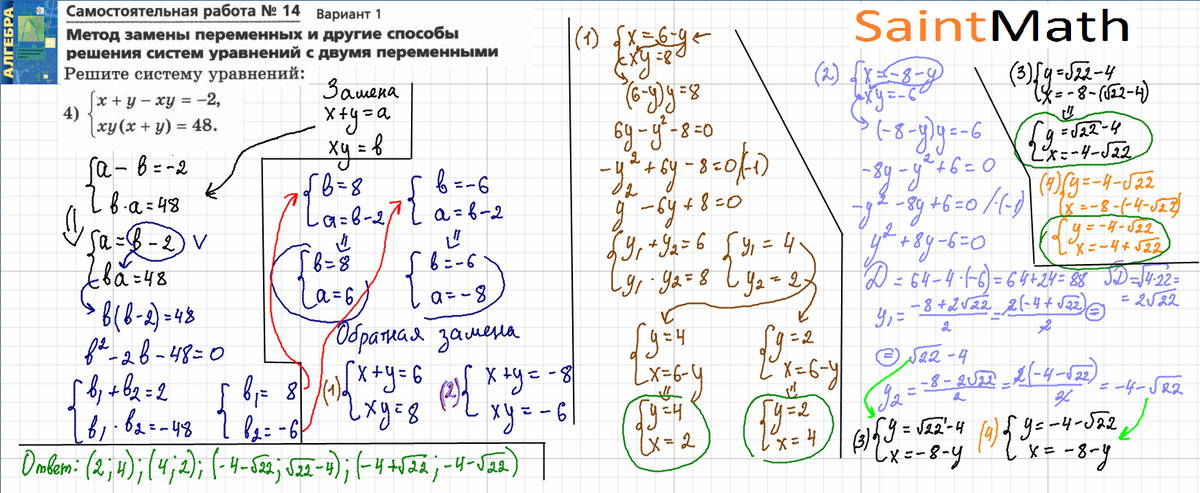 АЛГЕБРА
Самостоятельная работа № 14 Вариант 1
Метод замены переменных и другие способы
решения систем уравнений с двумя переменными
Решите систему уравнений:
4) {x + y − xy = −2,
xy(x + y) = 48.
Замена
x+y=a
xy=в
{a−в=−2
в·a=48
{a=в−2 V
вa=48
в(в−2)=48
в²−2в−48=0
{в₁+в₂=2
в₁·в₂=−48
{в₁=8
в₂=−6
{в=8
a=в−2
{в=8
a=6
{в=−6
a=в−2
{в=−6
a=−8
Обратная замена
(1) {x+y=6
xy=8
(2) {x+y=−8
xy=−6
Ответ: (2;4); (4;2); (−4−√22; √22−4); (−4+√22; −4−√22)
(1) {x=6−y
xy=8
(6−y)y=8
6y−y²−8=0
−y²+6y−8=0/·(−1)
y²−6y+8=0
{y₁+y₂=6
y₁·y₂=8
{y₁=4
y₂=2
{y=4
x=6−y
{y=4
x=2
{y=2
x=6−y
{y=2
x=4
SaintMath
(2) {x=−8−y
xy=−6
(−8−y)y=−6
−8y−y²+6=0
−y²−8y+6=0/·(−1)
y²+8y−6=0
D=64−4·(−6)=64+24=88 √D=√4·22=
=2√22
y₁=(−8+2√22)/2=2(−4+√22)/2=
=√22−4
y₂=(−8−2√22)/2=2(−4−√22)/2=−4−√22
(3) {y=√22−4
x=−8−y
(4) {y=−4−√22
x=−8−y
(3) {y=√22−4
x=−8−(√22−4)
{y=√22−4
x=−4−√22
(4) {y=−4−√22
x=−8−(−4−√22)
{y=−4−√22
x=−4+√22